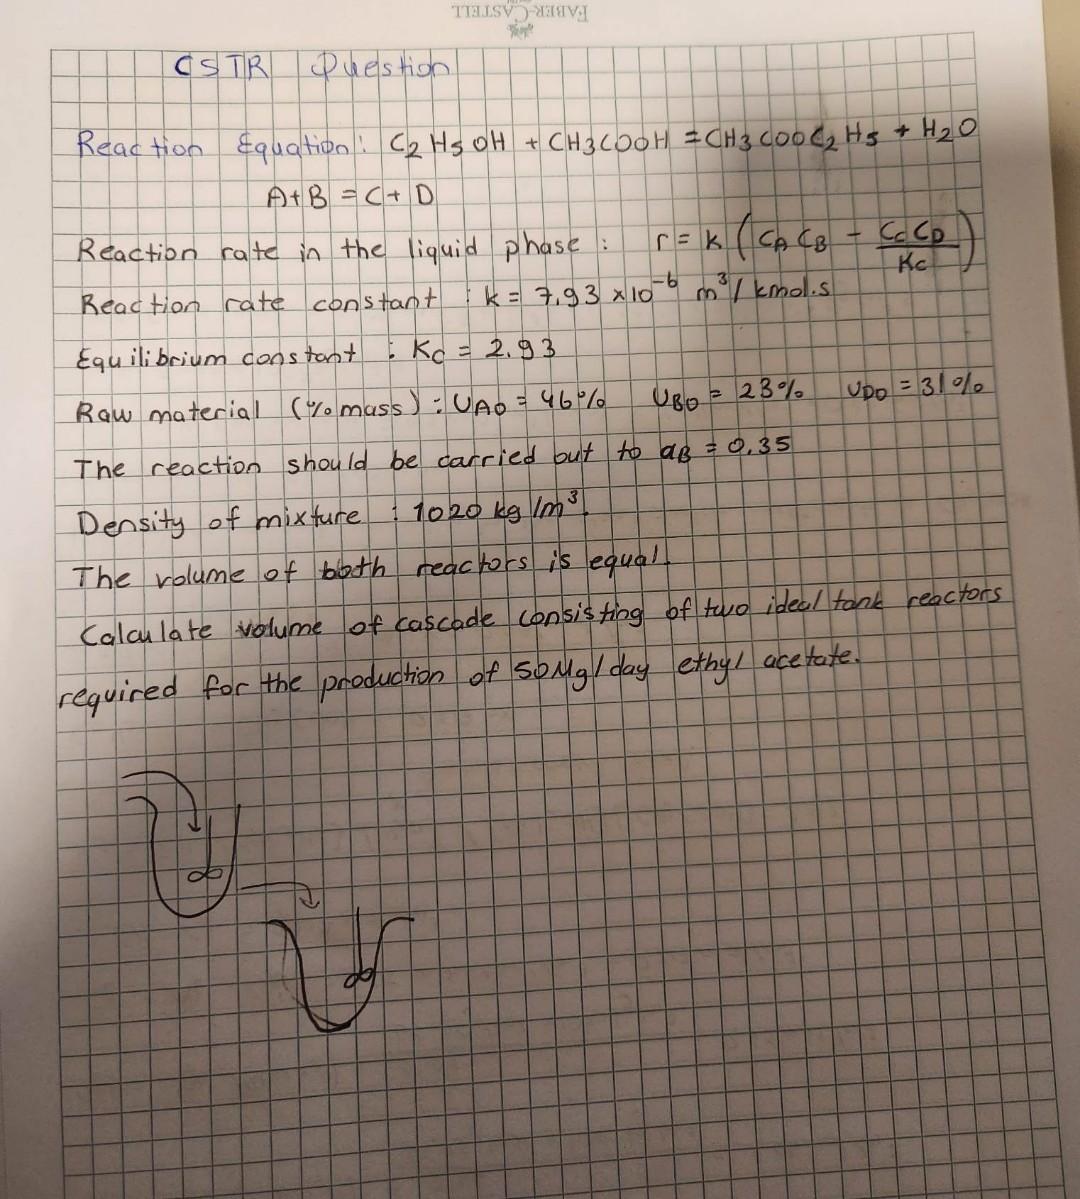 FABER-CASTELL
CSTR Question
Reaction Equation: C2H5OH + CH3COOH = CH3COOC2H5 + H2O
A+B = C+D
Reaction rate in the liquid phase : r = k (CA CB - CC CD / KC)
Reaction rate constant : k = 7,93 x10^-6 m³/kmol.s
Equilibrium constant : KC = 2.93
Raw material (% mass) : UAO = 46% UBO = 23% UDO = 31%
The reaction should be carried out to aB = 0,35
Density of mixture : 1020 kg/m³.
The volume of both reactors is equal.
Calculate volume of cascade consisting of two ideal tank reactors
required for the production of 50Mg/day ethyl acetate.